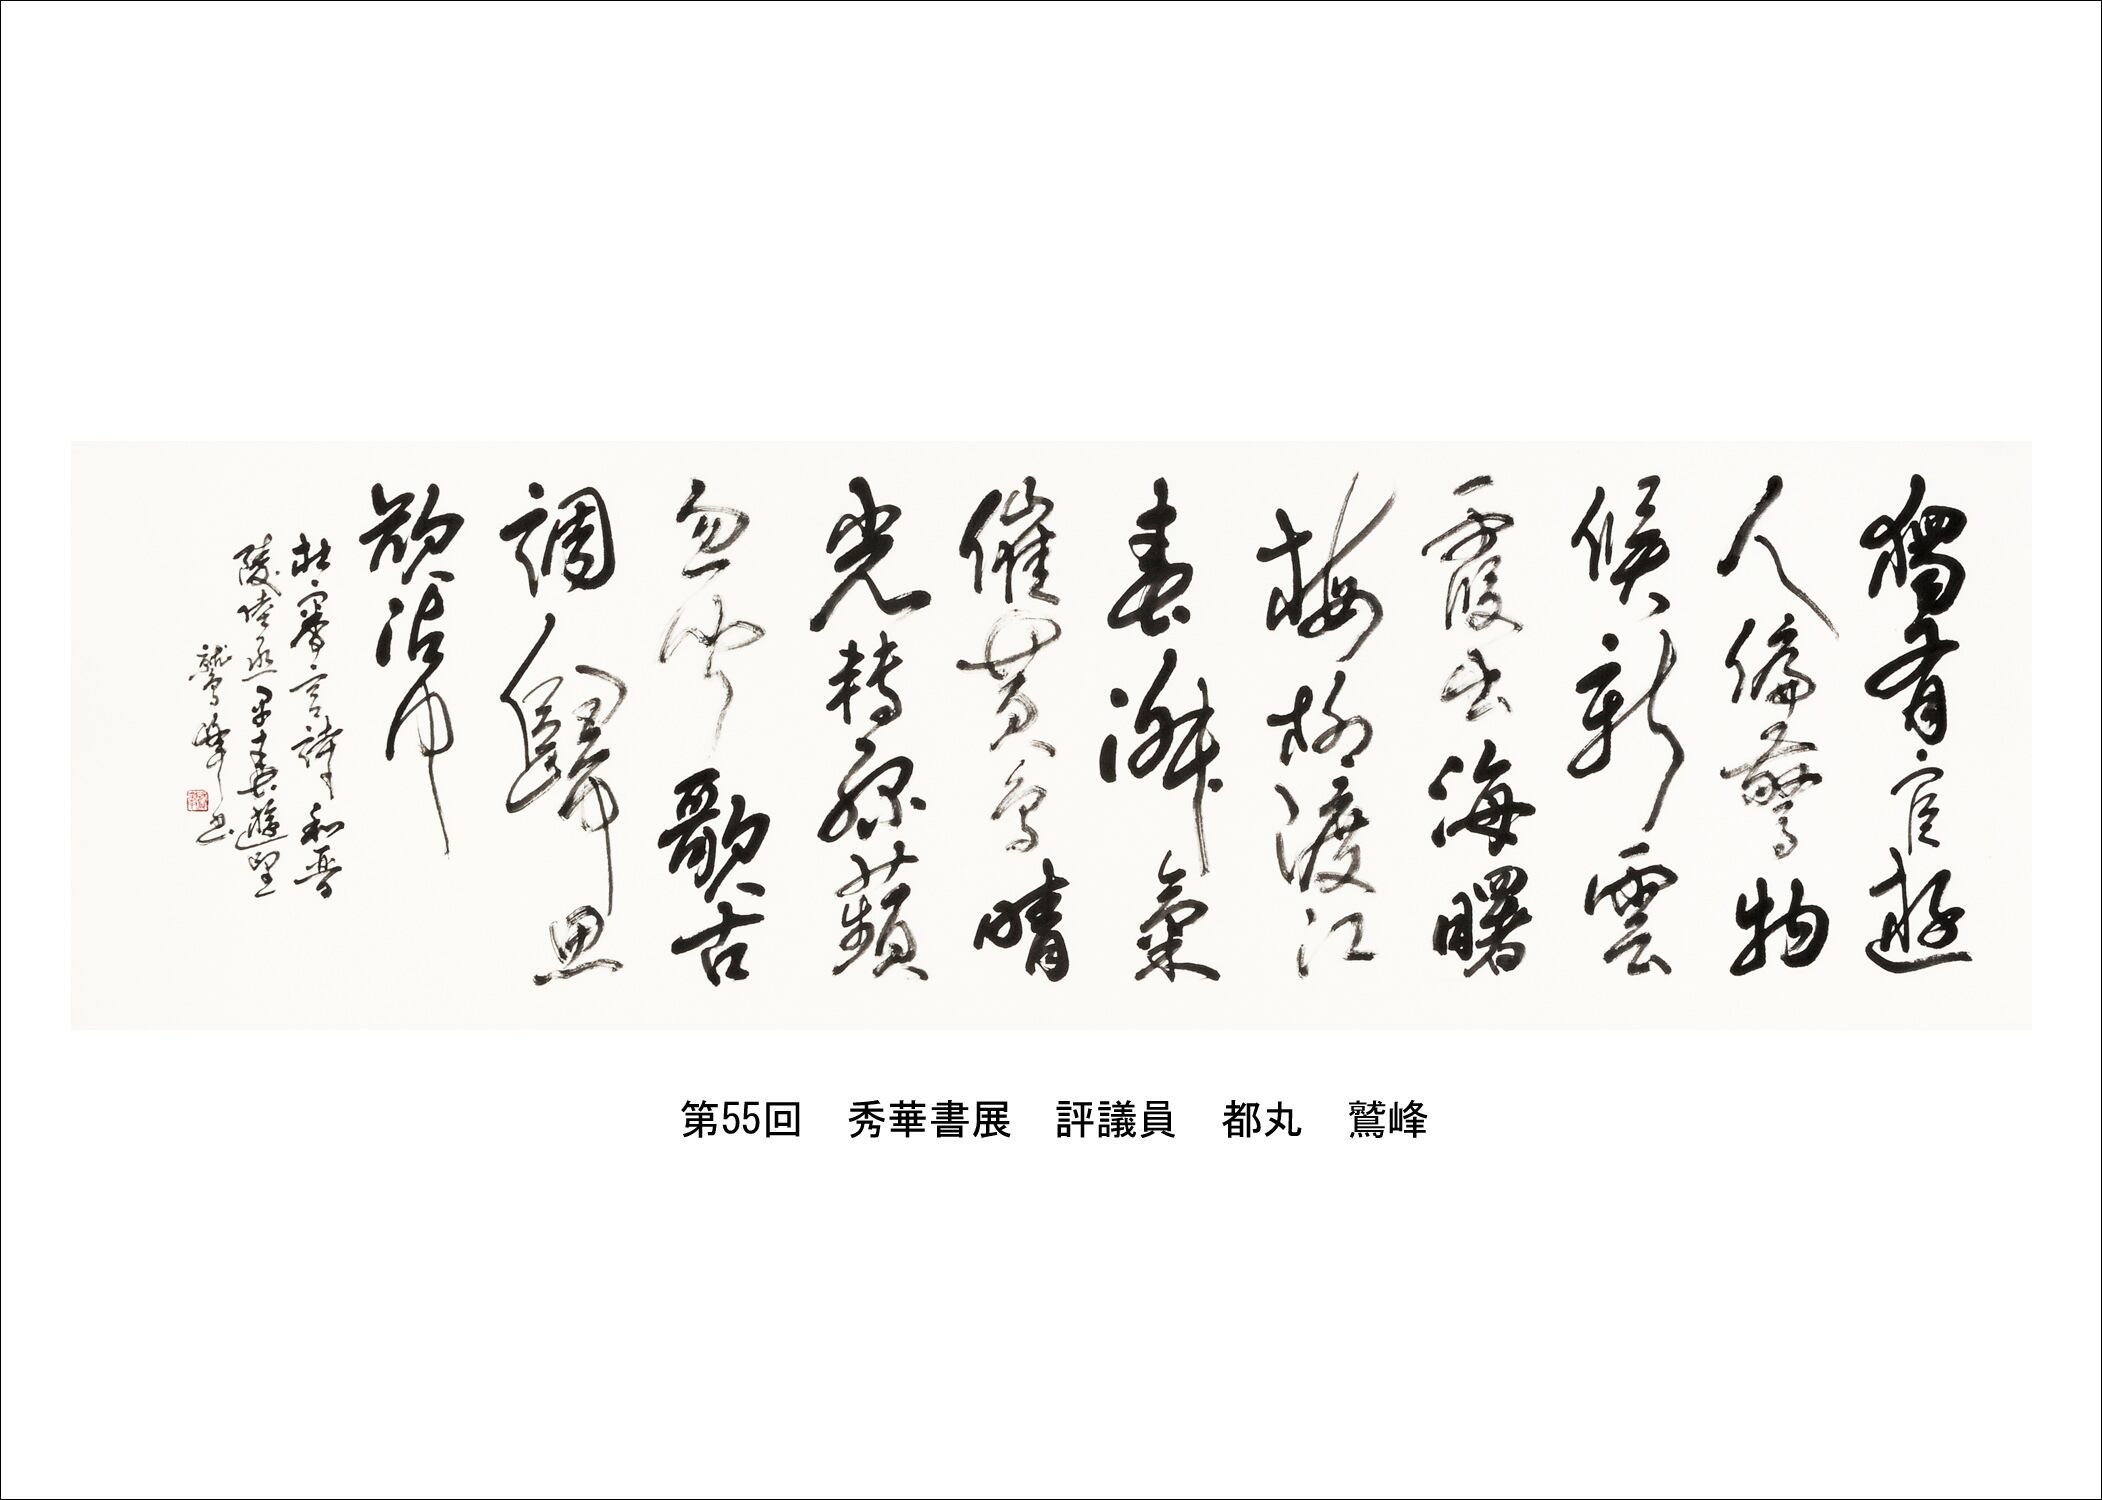 獨有宦遊
人偏驚物
候新雲
霞出海曙
梅柳渡江
春淑氣
催黄鳥晴
光轉綠蘋
忽聞歌古
調歸思
欲沾巾
杜審言詩和晋
陵陸丞早春遊望
鷲峰書
第55回　秀華書展　評議員　都丸　鷲峰